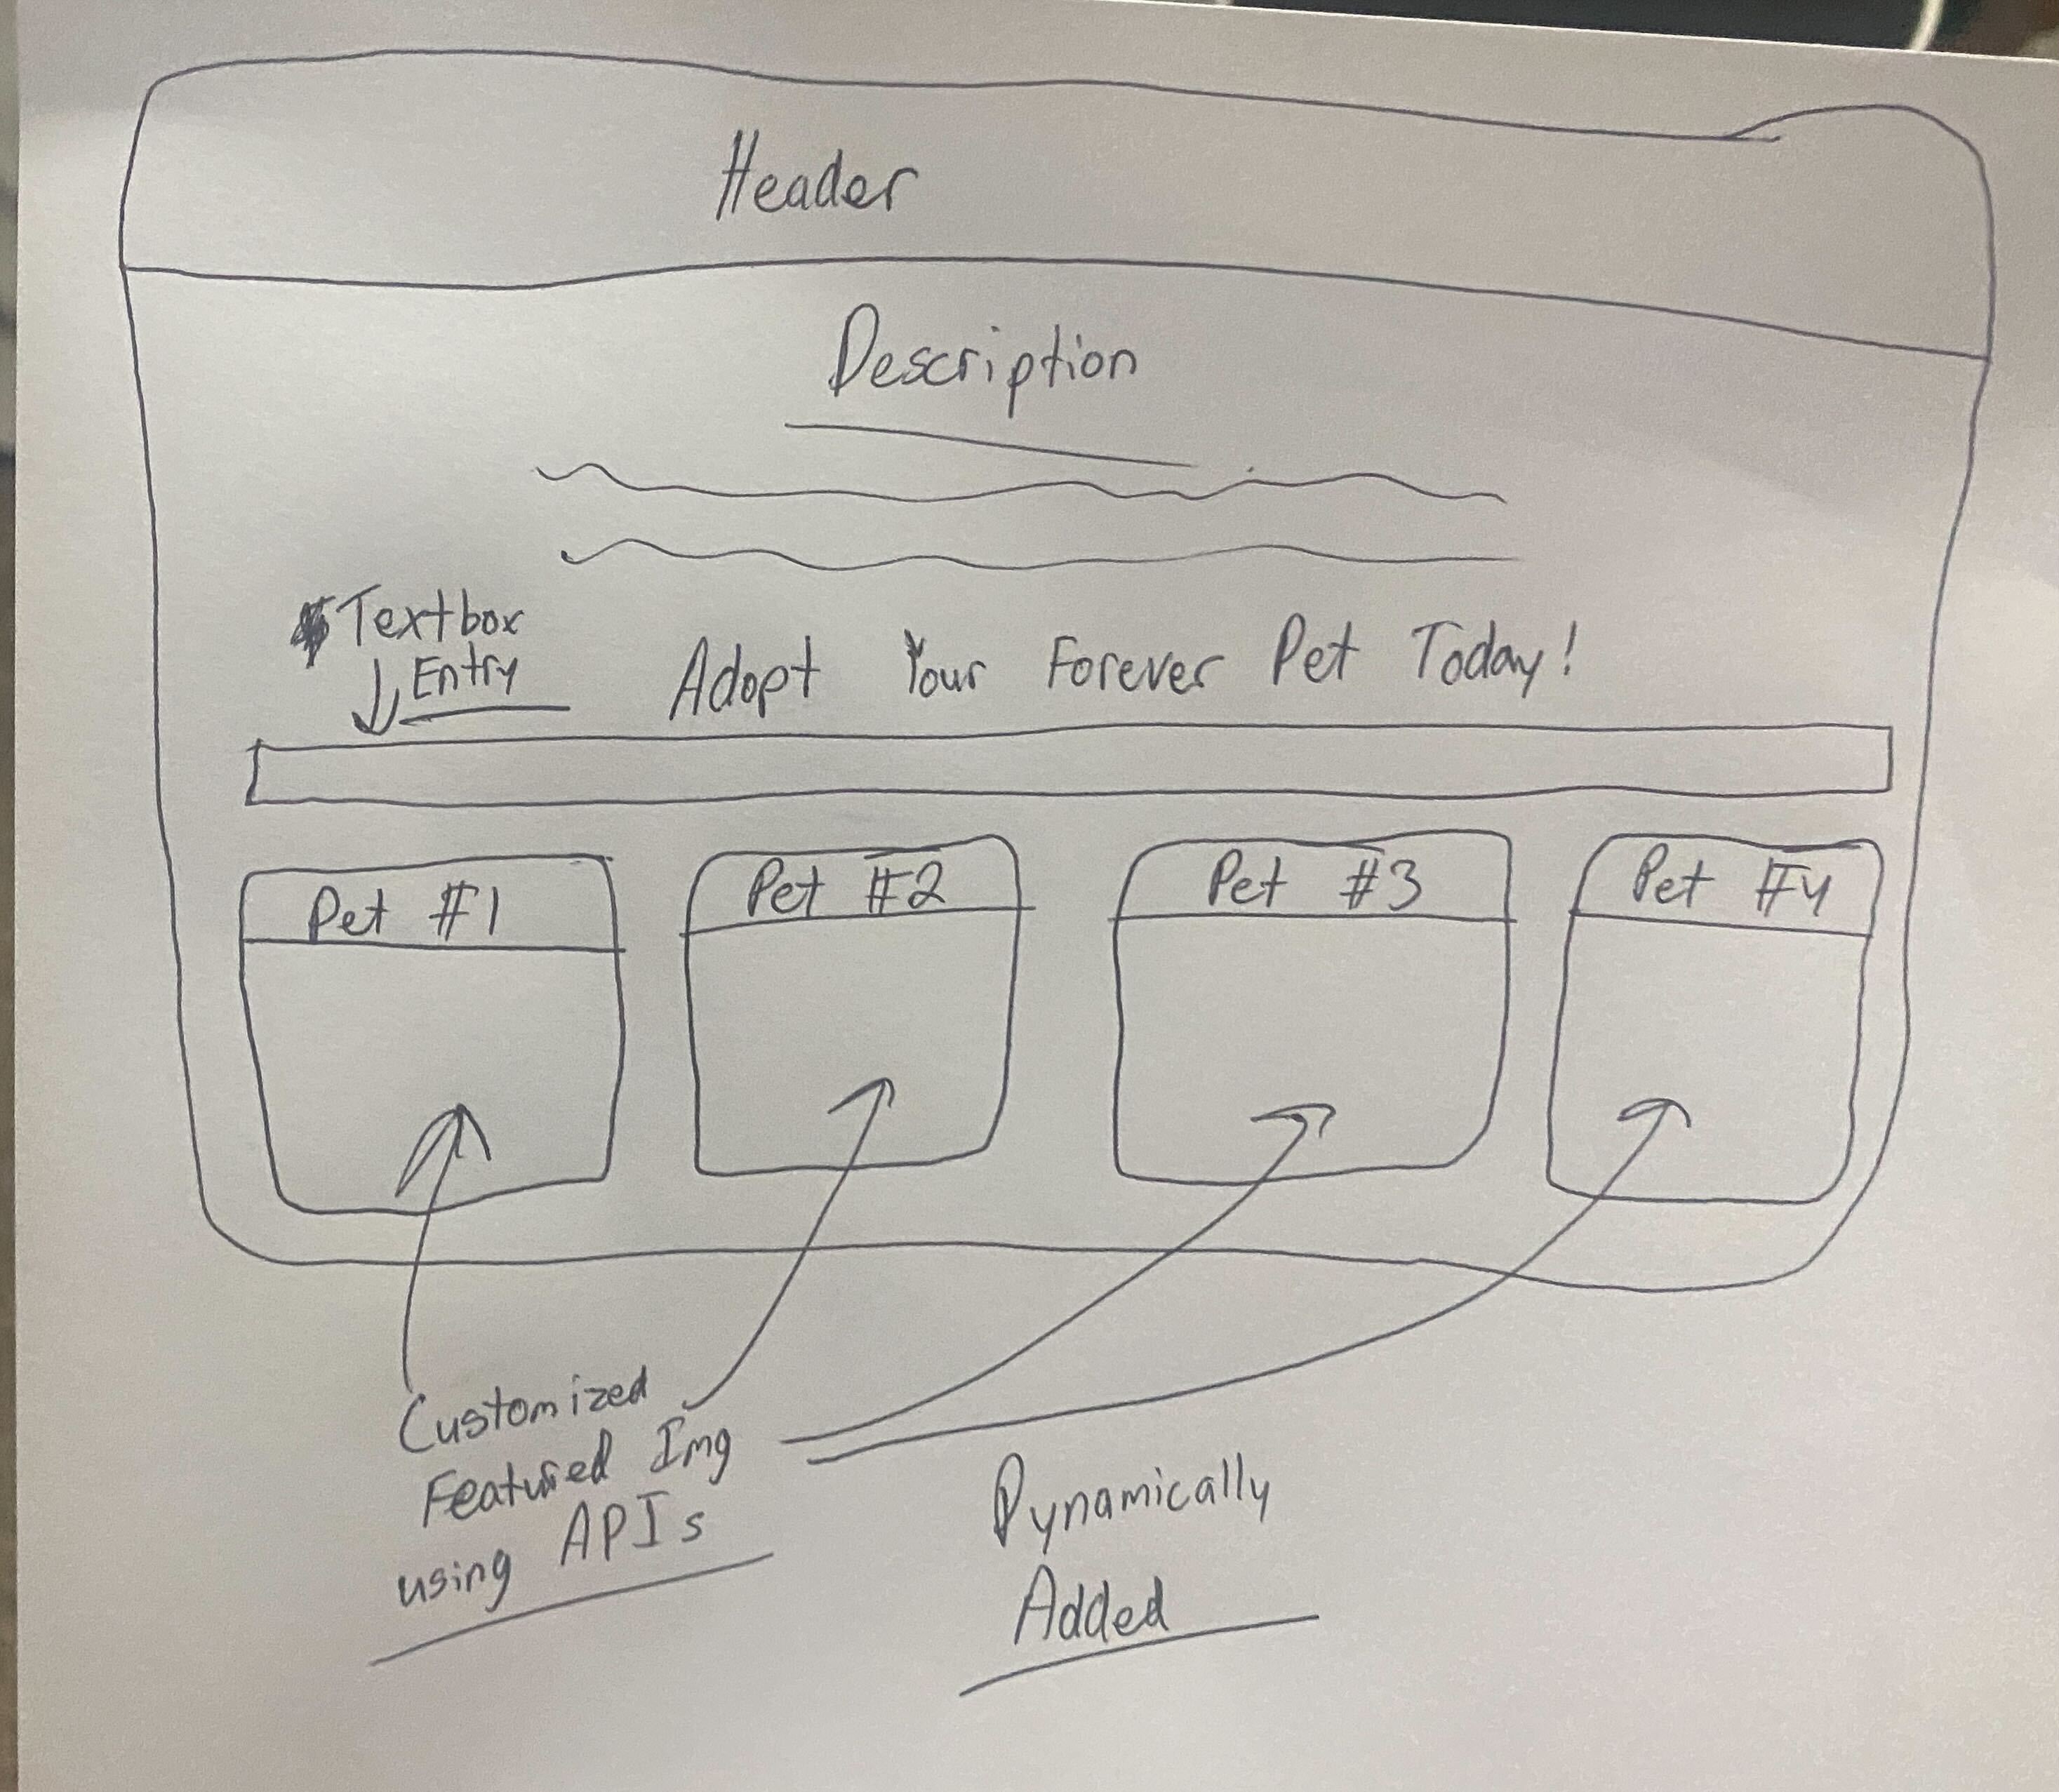 Header
Description
Textbox
Entry
Adopt Your Forever Pet Today!
Pet #1
Pet #2
Pet #3
Pet #4
Customized
Featured Img
using APIs
Dynamically
Added